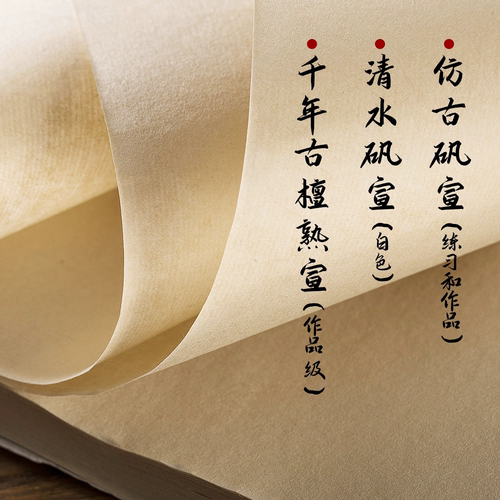 仿古矾宣(练习和作品)
清水矾宣(白色)
千年古檀熟宣(作品级)